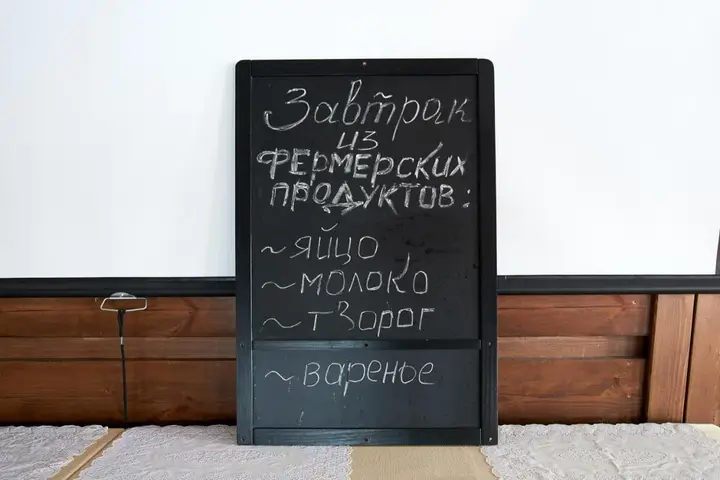 Завтрак
из
ФЕРМЕРСКИХ
ПРОДУКТОВ:
~ яйцо
~ молоко
~ творог
~ варенье